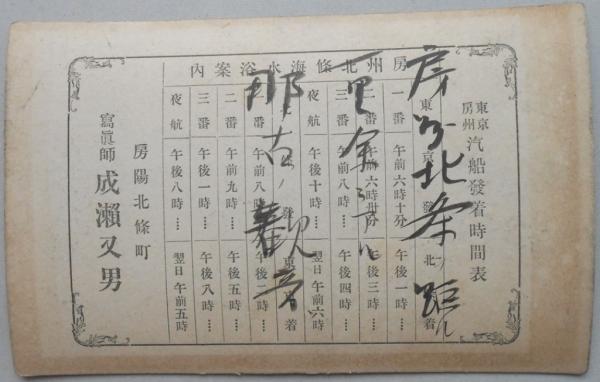 東京
房州
汽船發着時間表
房州北條海水浴案内
東京發 北 着
一番 午前六時十分 午後一時‥‥
二番 午前六時卅分 午後三時‥‥
三番 午前八時‥‥ 午後四時‥‥
夜航 午後十時‥‥ 翌日午前六時
發 東京着
一番 午前八時‥‥ 午後二時‥‥
二番 午前九時‥‥ 午後五時‥‥
三番 午後一時‥‥ 午後八時‥‥
夜航 午後八時‥‥ 翌日午前五時
房陽北條町
寫眞師 成瀬又男
房州北条 距ル
里余
那古ノ観音